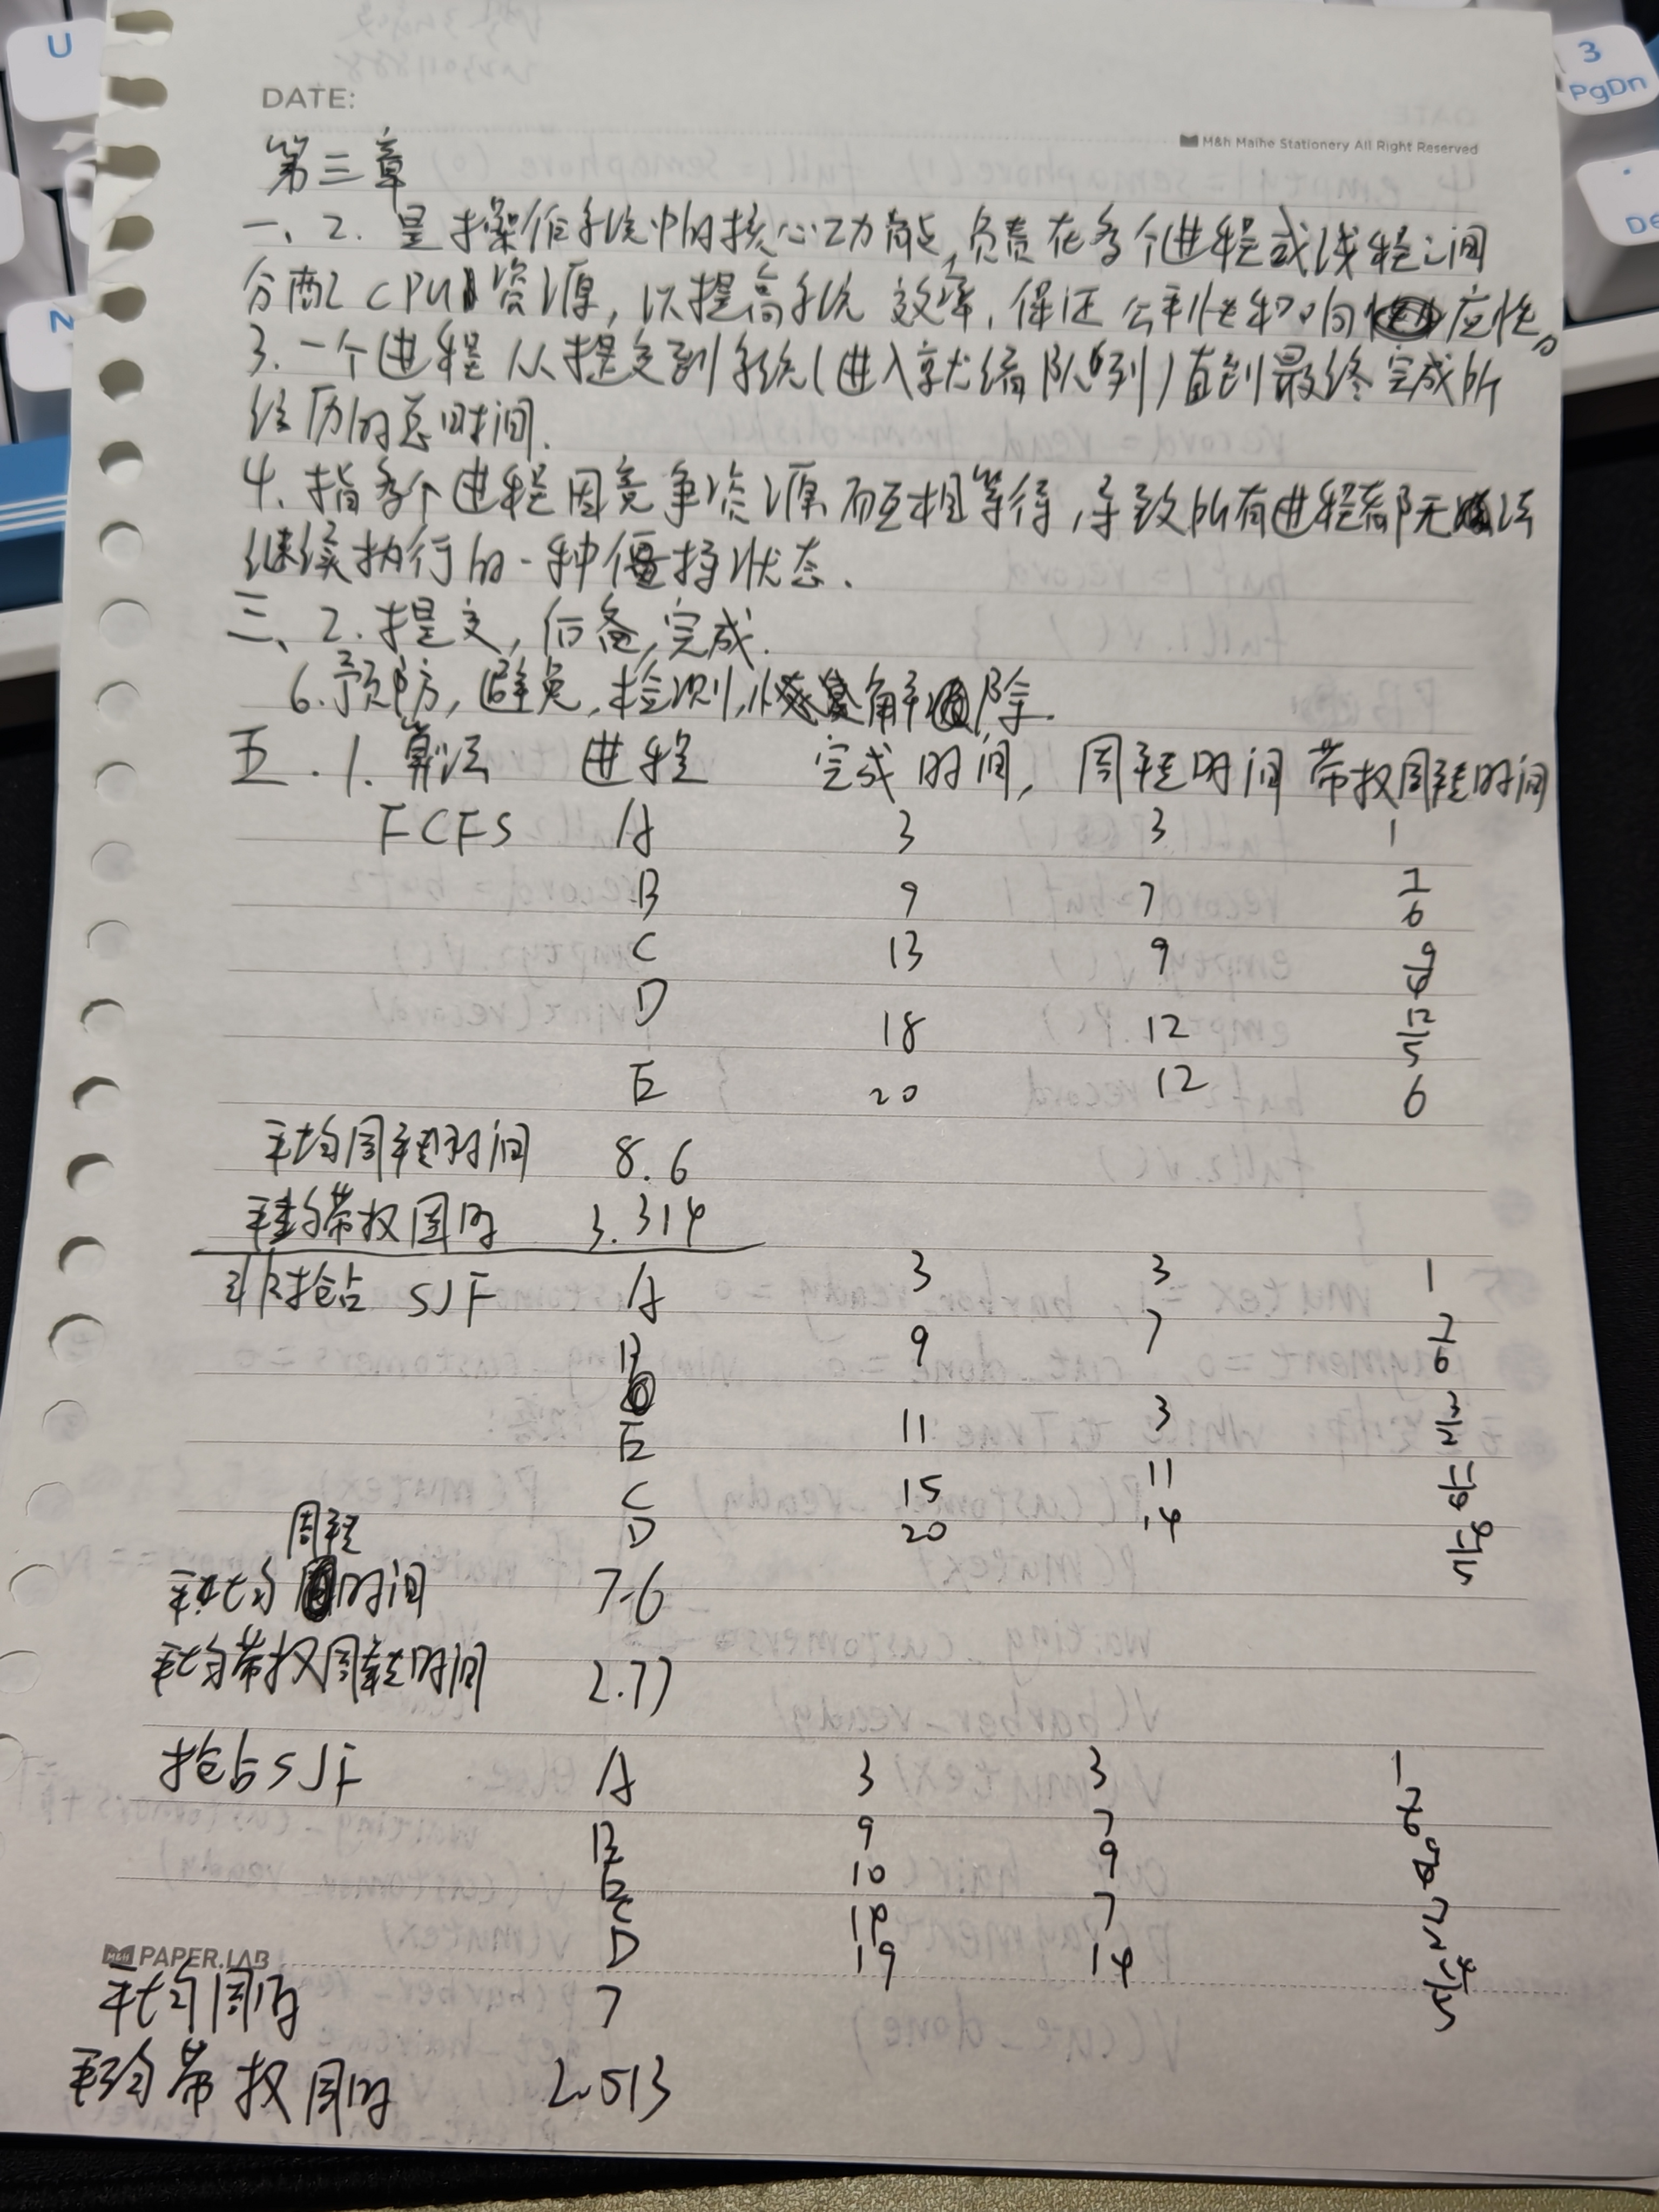 U
3
PgDn
N
De
DATE:
M&h Maihe Stationery All Right Reserved
第三章
一、2. 是操作系统中的核心功能,负责在多个进程或线程之间
分配CPU资源,以提高系统效率,保证公平性和响应性。
3. 一个进程从提交到系统(进入就绪队列)直到最终完成所
经历的总时间.
4. 指多个进程因竞争资源而互相等待,导致所有进程都无法
继续执行的一种僵持状态.
三、2. 提交,后备,完成.
6. 预防,避免,检测,解除.
五.1. 算法 进程 完成时间, 周转时间 带权周转时间
FCFS A 3 3 1
B 9 7 7/6
C 13 9 9/4
D 18 12 12/5
E 20 12 6
平均周转时间 8.6
平均带权周时 3.314
非抢占 SJF A 3 3 1
B 9 7 7/6
E 11 3 3/2
C 15 11 11/4
D 20 14 14/5
平均周转时间 7.6
平均带权周转时间 2.77
抢占SJF A 3 3 1
B 9 7
10 9
7
D 19 14
PAPER.LAB
平均周时 7
平均带权周时 2.513